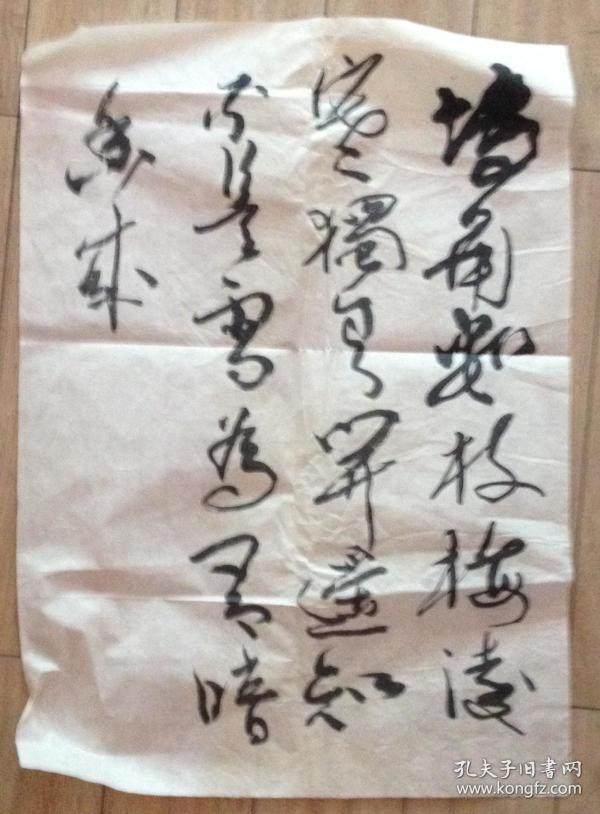 墙角數枝梅凌
寒獨自開遥知
不是雪為有暗
香來
孔夫子旧書网
www.kongfz.com